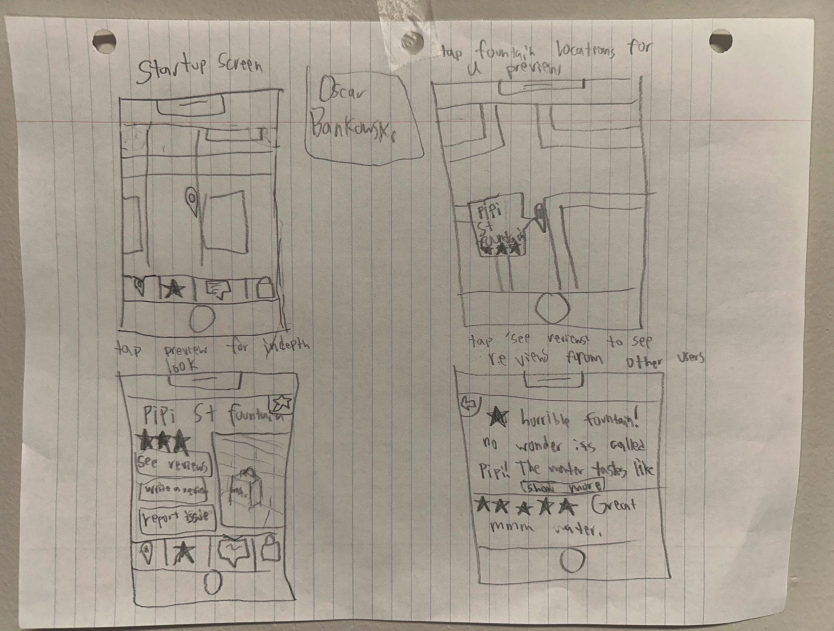 Startup Screen
Oscar
Bankowski
tap fountain locations for
a preview
PiPi
St
fountain
tap preview for indepth
look
PiPi St fountain
see reviews
write a review
report issue
tap "see reviews" to see
review from other users
horrible fountain!
no wonder its called
Pipi! The water tastes like
show more
Great
mmm water.